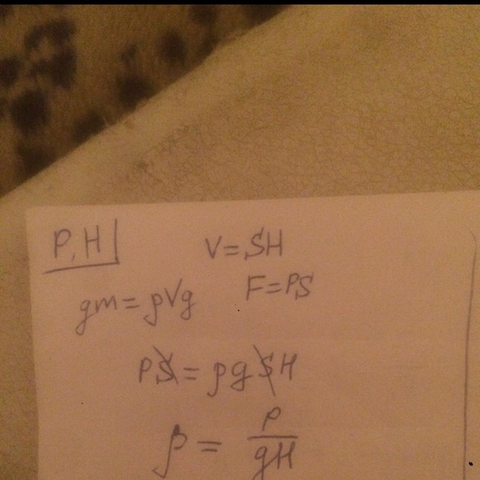 P, H
V=SH
gm=ρVg
F=PS
PS=ρgSH
ρ = P/gH